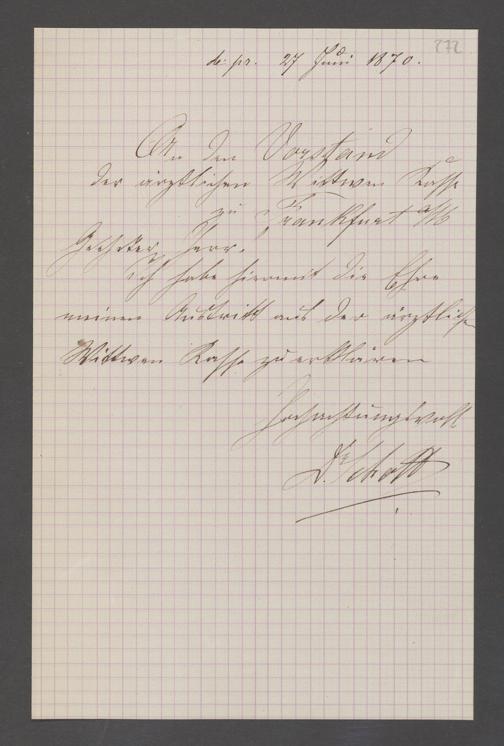 272
de pr. 27 Juni 1870.
An den Vorstand
der ärztlichen Wittwen Kasse
zu Frankfurt a/M
Geehrter Herr.
Ich habe hiermit die Ehre
meinen Austritt aus der ärztlichen
Wittwen Kasse zu erklären
Hochachtungsvoll
Dr. Schott